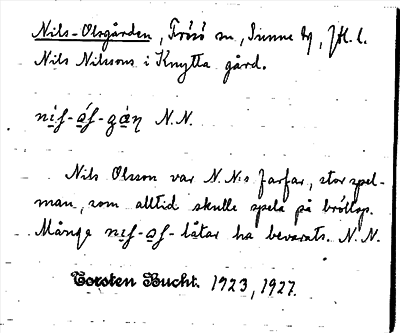 Nils-Olsgården, Frösö sn, Sunne tg, Jtl. l.
Nils Nilssons i Knytta gård.
N.N.
Nils Olsson var N.N:s farfar, stor spel-
man, som alltid skulle spela på bröllop.
Många låtar ha bevarats. N.N.
Torsten Bucht. 1923, 1927.